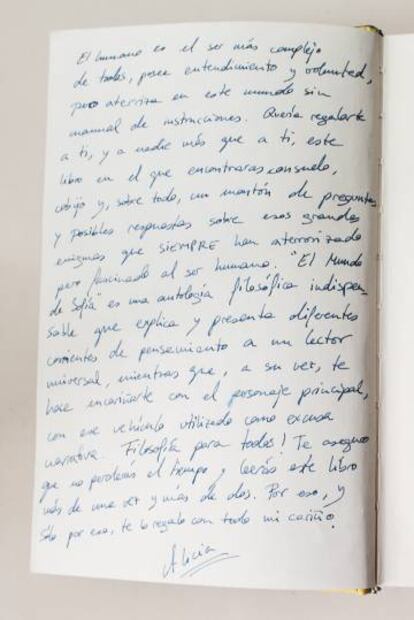 El humano es el ser más complejo
de todos, posee entendimiento y voluntad,
pero aterriza en este mundo sin
manual de instrucciones. Quería regalarte
a ti, y a nadie más que a ti, este
libro en el que encontraras consuelo,
cobijo y, sobre todo, un montón de preguntas
y posibles respuestas sobre esos grandes
enigmas que SIEMPRE han aterrorizado
pero fascinado al ser humano. "El Mundo
de Sofía" es una antología filosófica indispen-
sable que explica y presenta diferentes
corrientes de pensamiento a un lector
universal, mientras que, a su vez, te
hace encariñarte con el personaje principal,
con ese vehículo utilizado como excusa
narrativa. Filosofía para todos! Te aseguro
que no perderás el tiempo y leerás este libro
más de una vez y más de dos. Por eso, y
sólo por eso, te lo regalo con todo mi cariño.
Alicia